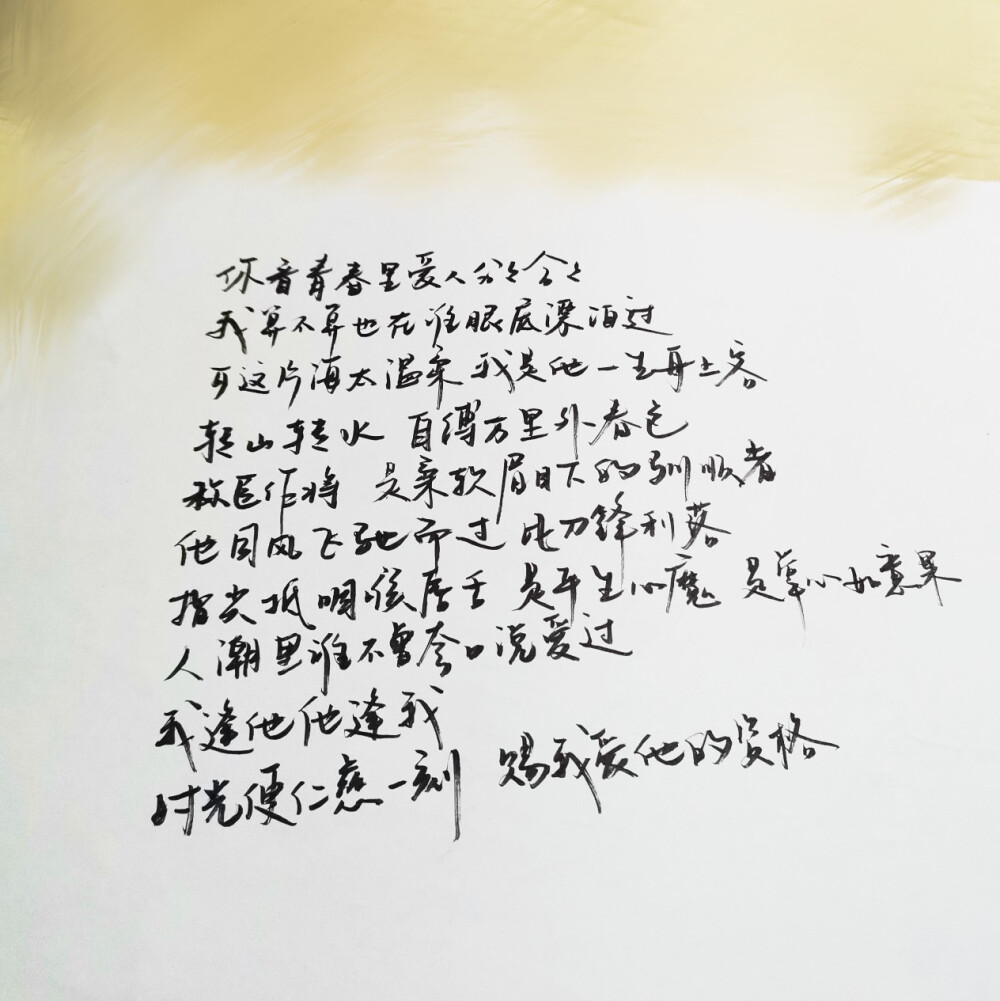 你看青春里爱人分分合合
我算不算也在谁眼底漂泊过
可这片海太温柔 我是他一生再上客
转山转水 自缚万里外春色
称臣作将 是柔软眉目下的驯顺者
他同风飞驰而过 比刀锋利落
指尖抵咽喉唇舌 是平生心魔 是掌心如意果
人潮里谁不曾夸口说爱过
我逢他他逢我
时光便仁慈一刻 赐我爱他的资格